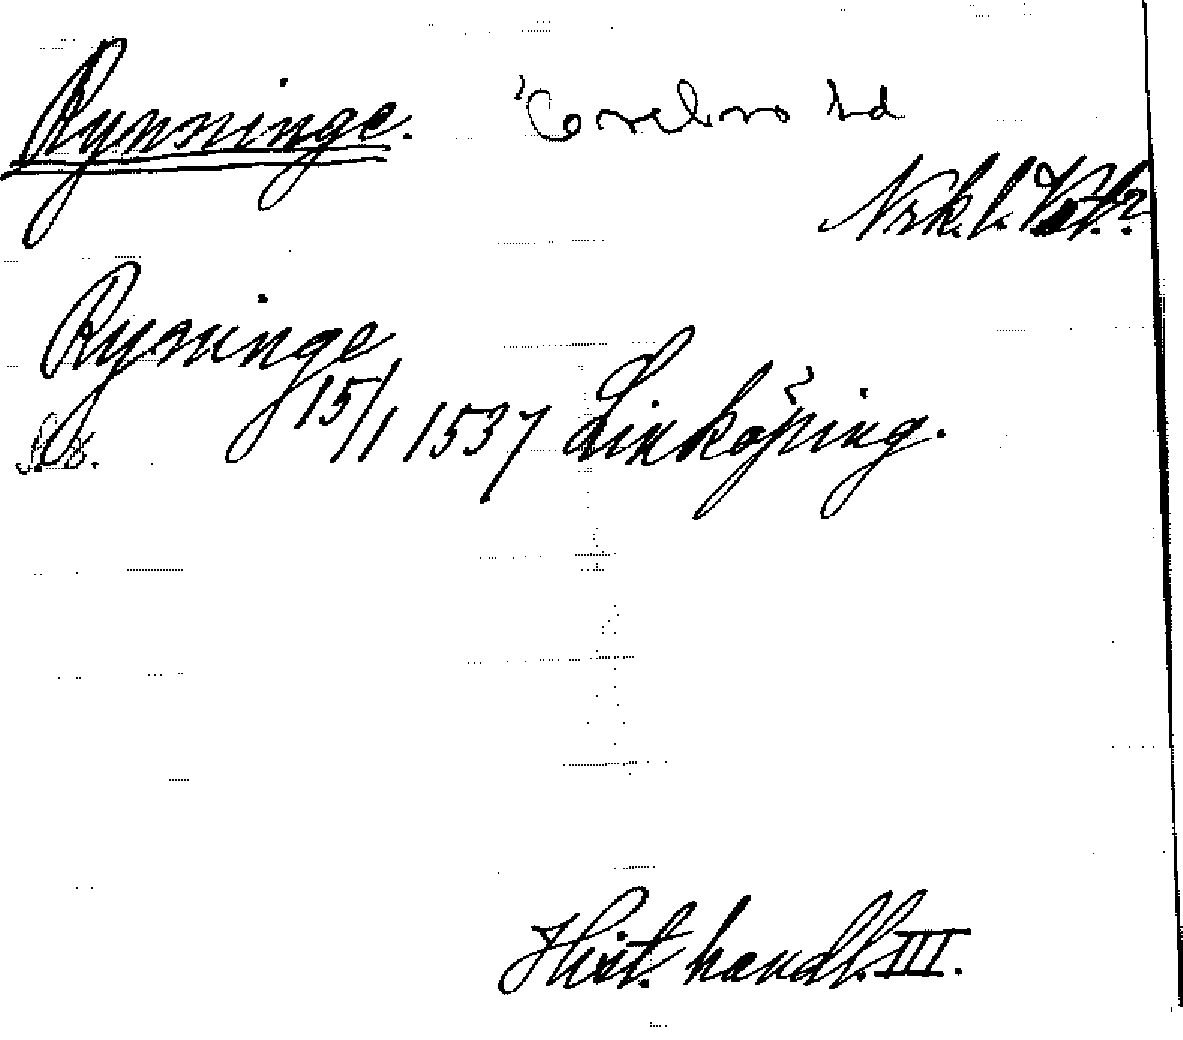 Rynninge. Örebro hd
Nrk. l.
Ryninge
15/1 1537 Linköping.
Hist. handl. III.